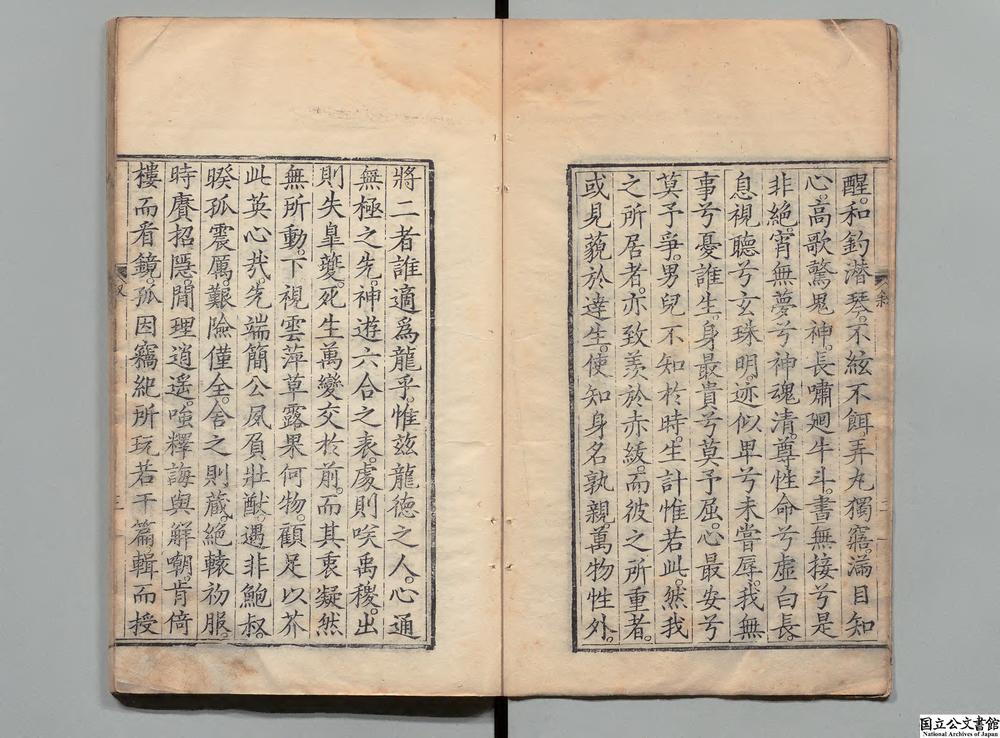 醒。和釣潜琴。不絃不餌弄丸獨窩。滿目知
心。高歌驚鬼神。長嘯廻牛斗。晝無接兮是
非絕。宵無夢兮神魂清。尊性命兮虛白長。
息視聽兮玄珠明。迹似卑兮未嘗辱。我無
事兮憂誰生。身最貴兮莫予屈。心最安兮
莫予爭。男兒不知於時。生計惟若此。然我
之所居者。亦致羨於赤紱。而彼之所重者。
或見藐於達生。使知身名孰親。萬物性外。
將二者誰適爲龍乎。惟玆龍德之人。心通
無極之先。神遊六合之表。處則唉禹稷。出
則失皐夔。死生萬變交於前。而其衷凝然
無所動。下視雲萍草露果何物。顧足以芥
此英心㢤。先端簡公夙負壯猷。遇非鮑叔。
暌孤震厲。艱險僅全。舍之則藏。絕轅初服。
時賡招隱。閒理逍遥。嗤釋誨與解嘲。肯倚
樓而看鏡。孤因竊紀所玩若干篇輯而授
三
国立公文書館
National Archives of Japan